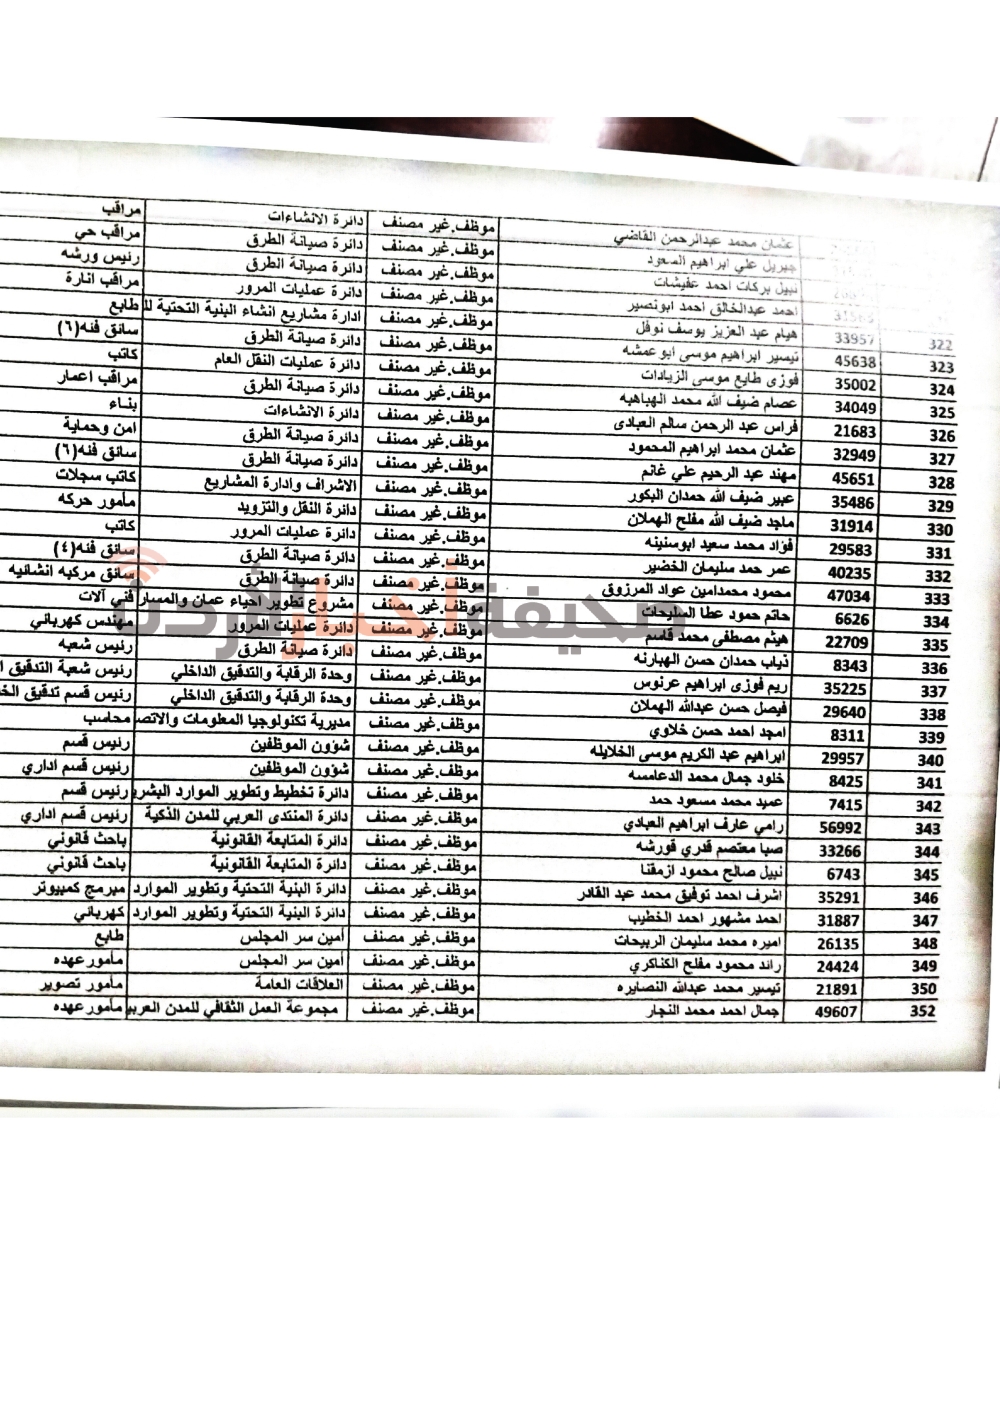 عثمان محمد عبدالرحمن القاضي موظف.غير مصنف دائرة الانشاءات مراقب
جبريل علي ابراهيم السعود موظف.غير مصنف دائرة صيانة الطرق مراقب حي
نبيل بركات احمد عفيشات موظف.غير مصنف دائرة صيانة الطرق رئيس ورشه
احمد عبدالخالق احمد ابونصير موظف.غير مصنف دائرة عمليات المرور مراقب انارة
322 33957 هيام عبد العزيز يوسف نوفل موظف.غير مصنف ادارة مشاريع انشاء البنية التحتية لل طابع
323 45638 تيسير ابراهيم موسى ابوعمشه موظف.غير مصنف دائرة صيانة الطرق سائق فئه(٦)
324 35002 فوزي طايع موسى الزيادات موظف.غير مصنف دائرة عمليات النقل العام كاتب
325 34049 عصام ضيف الله محمد الهباهبه موظف.غير مصنف دائرة صيانة الطرق مراقب اعمار
326 21683 فراس عبد الرحمن سالم العبادي موظف.غير مصنف دائرة الانشاءات بناء
327 32949 عثمان محمد ابراهيم المحمود موظف.غير مصنف دائرة صيانة الطرق امن وحماية
328 45651 مهند عبد الرحيم علي غانم موظف.غير مصنف دائرة صيانة الطرق سائق فئه(٦)
329 35486 عبير ضيف الله حمدان البكور موظف.غير مصنف الاشراف وادارة المشاريع كاتب سجلات
330 31914 ماجد ضيف الله مفلح الهملان موظف.غير مصنف دائرة النقل والتزويد مأمور حركه
331 29583 فؤاد محمد سعيد ابوسنينه موظف.غير مصنف دائرة عمليات المرور كاتب
332 40235 عمر حمد سليمان الخضير موظف.غير مصنف دائرة صيانة الطرق سائق فئه(٤)
333 47034 محمود محمدامين عواد المرزوق موظف.غير مصنف دائرة صيانة الطرق سائق مركبه انشائيه
334 6626 حاتم حمود عطا السليحات موظف.غير مصنف مشروع تطوير احياء عمان والمسار فني آلات
335 22709 هيثم مصطفى محمد قاسم موظف.غير مصنف دائرة عمليات المرور مهندس كهربائي
336 8343 ذياب حمدان حسن الهبارنه موظف.غير مصنف دائرة صيانة الطرق رئيس شعبه
337 35225 ريم فوزي ابراهيم عرنوس موظف.غير مصنف وحدة الرقابة والتدقيق الداخلي رئيس شعبة التدقيق ا
338 29640 فيصل حسن عبدالله الهملان موظف.غير مصنف وحدة الرقابة والتدقيق الداخلي رئيس قسم تدقيق الخ
339 8311 امجد احمد حسن خلاوي موظف.غير مصنف مديرية تكنولوجيا المعلومات والاتص محاسب
340 29957 ابراهيم عبد الكريم موسى الخلايله موظف.غير مصنف شؤون الموظفين رئيس قسم
341 8425 خلود جمال محمد الدعامسه موظف.غير مصنف شؤون الموظفين رئيس قسم اداري
342 7415 عميد محمد مسعود حمد موظف.غير مصنف دائرة تخطيط وتطوير الموارد البشري رئيس قسم
343 56992 رامي عارف ابراهيم العبادي موظف.غير مصنف دائرة المنتدى العربي للمدن الذكية رئيس قسم اداري
344 33266 صبا معتصم قدري قورشه موظف.غير مصنف دائرة المتابعة القانونية باحث قانوني
345 6743 نبيل صالح محمود ازمقنا موظف.غير مصنف دائرة المتابعة القانونية باحث قانوني
346 35291 اشرف احمد توفيق محمد عبد القادر موظف.غير مصنف دائرة البنية التحتية وتطوير الموارد مبرمج كمبيوتر
347 31887 احمد مشهور احمد الخطيب موظف.غير مصنف دائرة البنية التحتية وتطوير الموارد كهربائي
348 26135 اميره محمد سليمان الربيحات موظف.غير مصنف أمين سر المجلس طابع
349 24424 رائد محمود مفلح الكناكري موظف.غير مصنف أمين سر المجلس مأمور عهده
350 21891 تيسير محمد عبدالله النصايره موظف.غير مصنف العلاقات العامة مأمور تصوير
352 49607 جمال احمد محمد النجار موظف.غير مصنف مجموعة العمل الثقافي للمدن العربي مأمور عهده
صحيفة أخبار الأردن